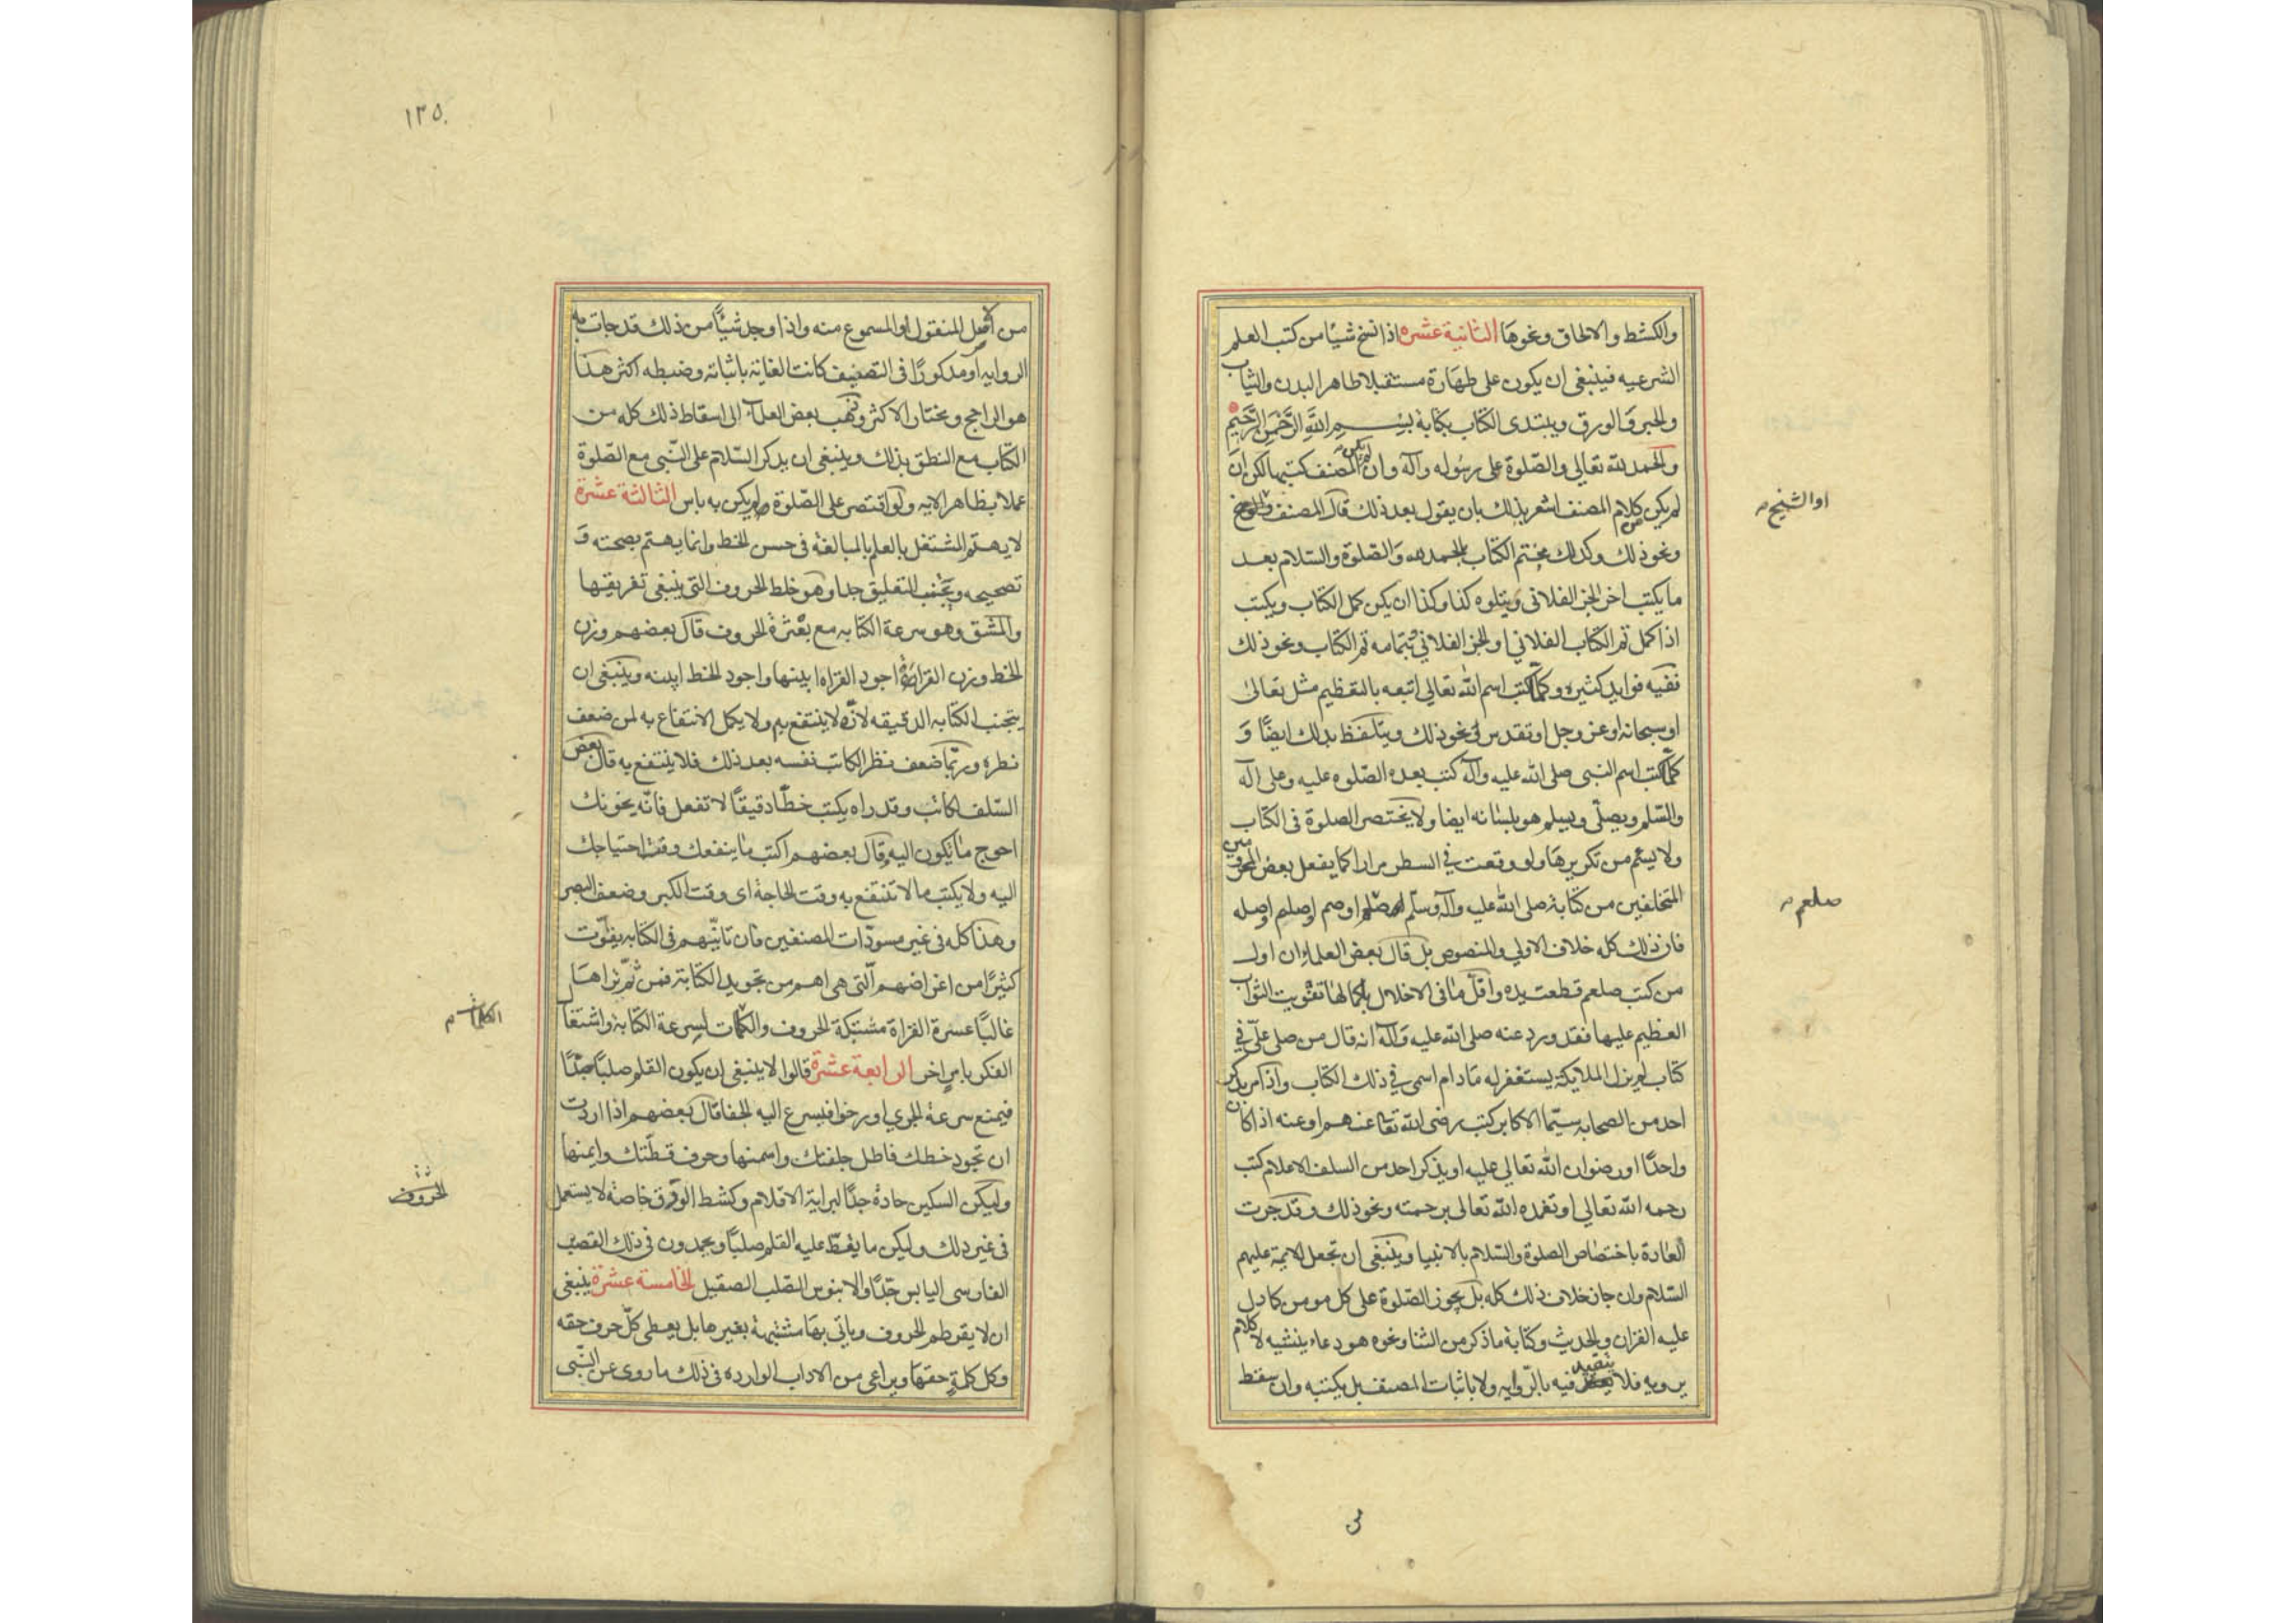 والكشط والالحاق ونحوها الثانية عشره اذا نسخ شيئا من كتب العلم
الشرعيه فينبغى ان يكون على طهارة مستقبلا طاهر البدن والثياب
والحبر والورق ويبتدى الكتاب بكتابة بسم الله الرَّحْمن الرَّحيم
والحمد لله تعالى والصّلوة على رسوله وآله وان لم يكن المصنف كتبها لكن ان
لم يكن من كلام المصنف اشعر بذلك بان يقول بعد ذلك قال المصنف
او الشيخ
ونحو ذلك وكذلك يختم الكتاب بالحمدله والصّلوة والسّلام بعد
ما يكتب اخر الجزء الفلانى ويتلوه كذا وكذا ان يكن كمل الكتاب ويكتب
اذا كمل تم الكتاب الفلانى او الجزء الفلانى بتمامه تم الكتاب ونحو ذلك
ففيه فوايد كثيره وكلّما كتب اسم الله تعالى اتبعه بالتعظيم مثل تعالىٰ
او سبحانه او عز وجل او تقدس او نحو ذلك ويتلفظ بذلك ايضًا وَ
كلّما كتب اسم النبى صلى الله عليه وآله كتب بعده الصّلوه عليه وعلى آله
والسّلم ويصلّى ويسلم هو بلسانه ايضا ولا يختصر الصلوة فى الكتاب
ولا يسئم من تكريرها ولو وقعت في السطر مرارا كما يفعل بعض المحرومين
المتخلفين من كتابة صلى الله عليه وآله وسلّم او صم او صلم او صله
صلعم
فان ذلك كله خلاف الاولى والمنصوص بل قال بعض العلماء ان اول
من كتب صلعم قطعت يده واقلّ ما فى الاخلال بكمالها تفويت الثواب
العظيم عليها فقد ورد عنه صلى الله عليه وآله انه قال من صلى علىّ في
كتاب لم يزل الملايكة يستغفر له ما دام اسمى في ذلك الكتاب واذا مر بذكر
احد من الصحابه سيّما الاكابر كتب رضى الله تعا عنهم او عنه اذا كان
واحدًا او رضوان الله تعالى عليه او يذكر احد من السلف الاعلام كتب
رحمه الله تعالى او تغمده الله تعالى برحمته ونحو ذلك وقد جرت
العادة باختصاص الصلوة والسّلام بالانبيا وينبغى ان تجعل للايمة عليهم
السّلام وان جاز خلاف ذلك كله بل يجوز الصّلوة على كل مومن كما دل
عليه القران والحديث وكتابة ما ذكر من الثنا ونحوه هو دعاء ينشيه لا كلام
يرويه فلا يتقيد فيه بالرّوايه ولا باثبات المصنف بل يكتبه وان سقط
١٣٥
من اصل المنقول او المسموع منه واذا وجد شيئًا من ذلك قد جات به
الروايه او مذكورًا فى التصنيف كانت العناية باثباته وضبطه اكثر هذا
هو الراجح ومختار الاكثر وذهب بعض العلماء الى اسقاط ذلك كله من
الكتاب مع النطق بذلك وينبغى ان يذكر السّلام على النّبى مع الصّلوة
عملا بظاهر الايه ولو اقتصر على الصّلوة لم يكن به باس الثالثة عشرة
لا يهتم المشتغل بالعلم بالمبالغه فى حسن الخط وانما يهتم بصحته وَ
تصحيحه ويجتنب التعليق جدا وهو خلط الحروف التى ينبغى تفريقها
والمشق وهو سرعة الكتابه مع بعثرة الحروف قال بعضهم وزن
الخط وزن القراءة اجود القراه ابينها واجود الخط ابينه وينبغى ان
يتجنب الكتابه الدقيقه لانّه لا ينتفع به ولا يكمل الانتفاع به لمن ضعف
نظره وربّما ضعف نظر الكاتب نفسه بعد ذلك فلا ينتفع به قال بعض
السّلف لكاتب وقد راه يكتب خطّا دقيقًا لا تفعل فانّه يخونك
احوج ما يكون اليه وقال بعضهم اكتب ما ينفعك وقت احتياجك
اليه ولا يكتب ما لا تنتفع به وقت الحاجة اى وقت الكبر وضعف البصر
وهذا كله فى غير مسودّات المصنفين فان تانّيهم فى الكتابه يفوّت
كثيرًا من اغراضهم الّتى هى اهم من تجويد الكتابة فمن ثمّ نراها
غالبًا عسرة القراة مشتبكة الحروف والكلمات لسرعة الكتابة واشتغال
الكلمات
الفكر بامرٍ اخر الرابعة عشرة قالوا لا ينبغى ان يكون القلم صلبًا جدّا
فيمنع سرعة الجرى او رخوا فيسرع اليه الحفا قال بعضهم اذا اردت
ان تجود خطك فاطل جلفتك واسمنها وحرف قطّتك وايمنها
الحروف
وليكن السكين حادة جدّا لبراية الاقلام وكشط الورق خاصة لا يستعمل
فى غير ذلك وليكن ما يقطّ عليه القلم صلبًا ويحمدون فى ذلك القصب
الفارسى اليابس جدًّا والابنوس الصّلب الصقيل الخامسة عشرة ينبغى
ان لا يقرطم الحروف وياتى بها مشتبهة بغيرها بل يعطى كلّ حرف حقه
وكل كلمةٍ حقها ويراعى من الاداب الوارده فى ذلك ما روى عن النّبى